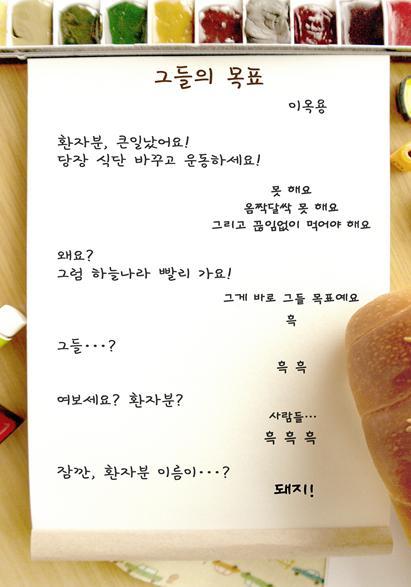 그들의 목표
이옥용
환자분, 큰일났어요!
당장 식단 바꾸고 운동하세요!
못 해요
옴짝달싹 못 해요
그리고 끊임없이 먹어야 해요
왜요?
그럼 하늘나라 빨리 가요!
그게 바로 그들 목표예요
흑
그들···?
흑 흑
여보세요? 환자분?
사람들···
흑 흑 흑
잠깐, 환자분 이름이···?
돼지!